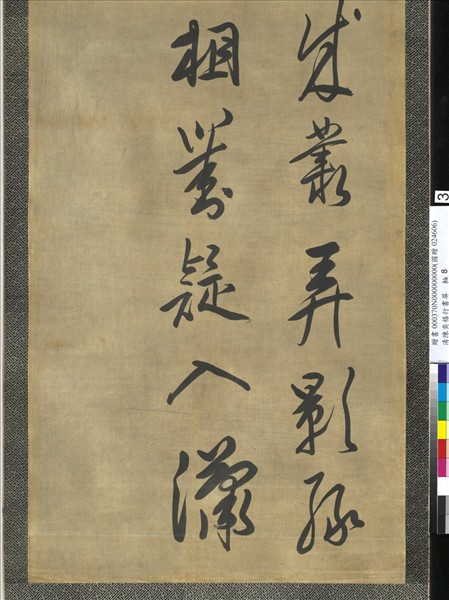 成叢弄影
相對疑入瀟
3
贈書 000370N000000000(國贈 024606)
清陳奕禧行書屏 軸 8